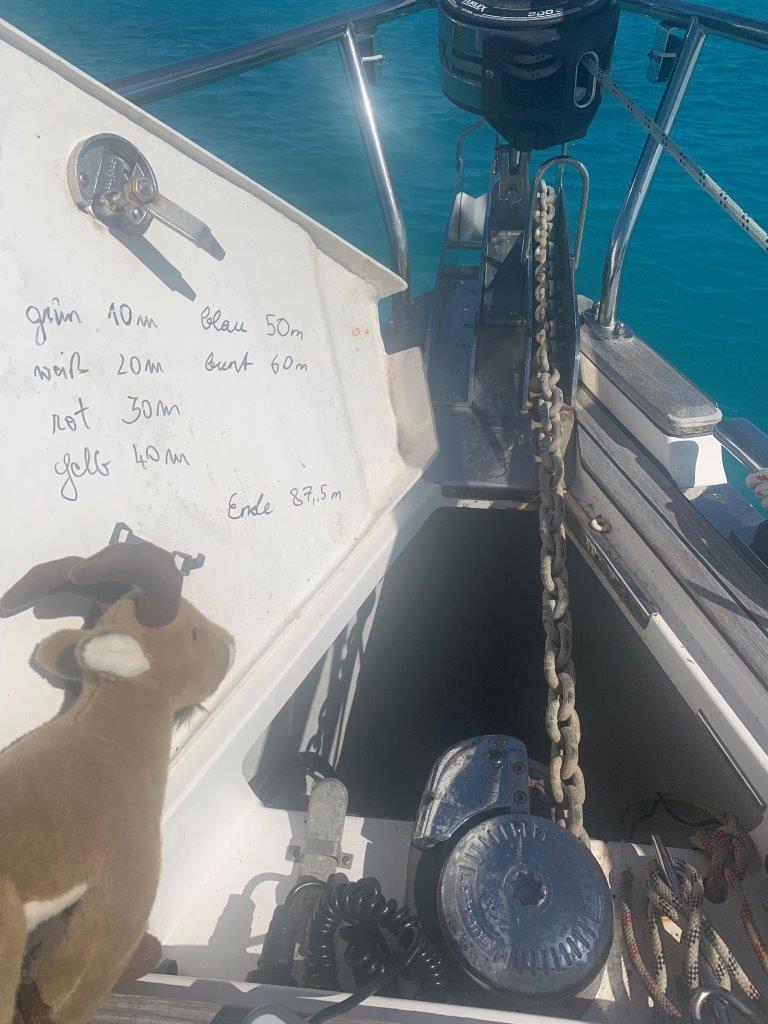 grün 10m blau 50m
weiß 20m bunt 60m
rot 30m
gelb 40m
Ende 87,5m